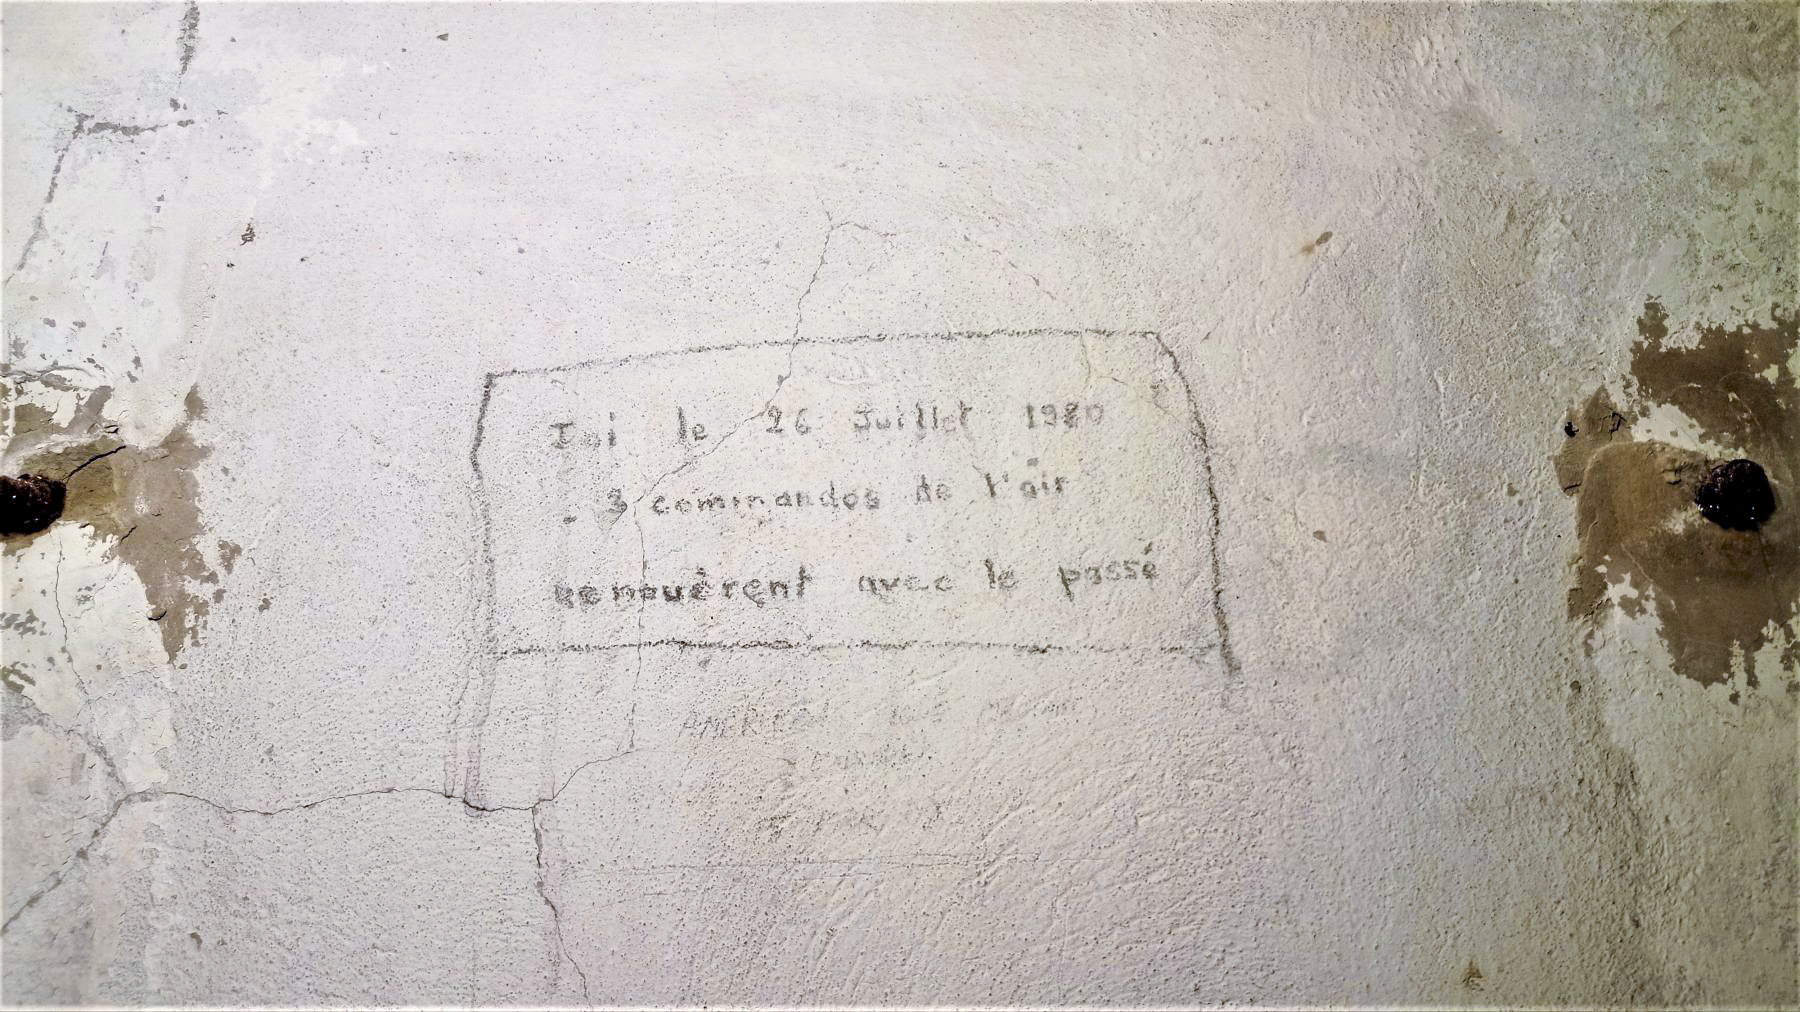 Ici le 26 Juillet 1980
3 commandos de l'air
renouèrent avec le passé
AMERICAN